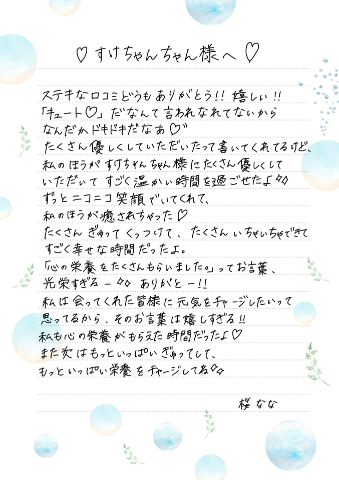 ♡ すけちゃんちゃん様へ ♡
ステキな口コミどうもありがとう!! 嬉しい!!
「キュート♡」だなんて言われなれてないから
なんだかドキドキだなあ♡
たくさん優しくしていただいたって書いてくれてるけど、
私のほうがすけちゃんちゃん様にたくさん優しくして
いただいて すごく温かい時間を過ごせたよ
ずっとニコニコ笑顔でいてくれて、
私のほうが癒されちゃった♡
たくさん ぎゅってくっつけて、たくさん いちゃいちゃできて
すごく幸せな時間だったよ。
「心の栄養をたくさんもらいました。」ってお言葉、
光栄すぎるー ありがとー!!
私は会ってくれた皆様に元気をチャージしたいって
思ってるから、そのお言葉は嬉しすぎる!!
私も心の栄養がもらえた時間だったよ♡
また次はもっといっぱいぎゅってして、
もっといっぱい栄養をチャージしてね
桜 なな